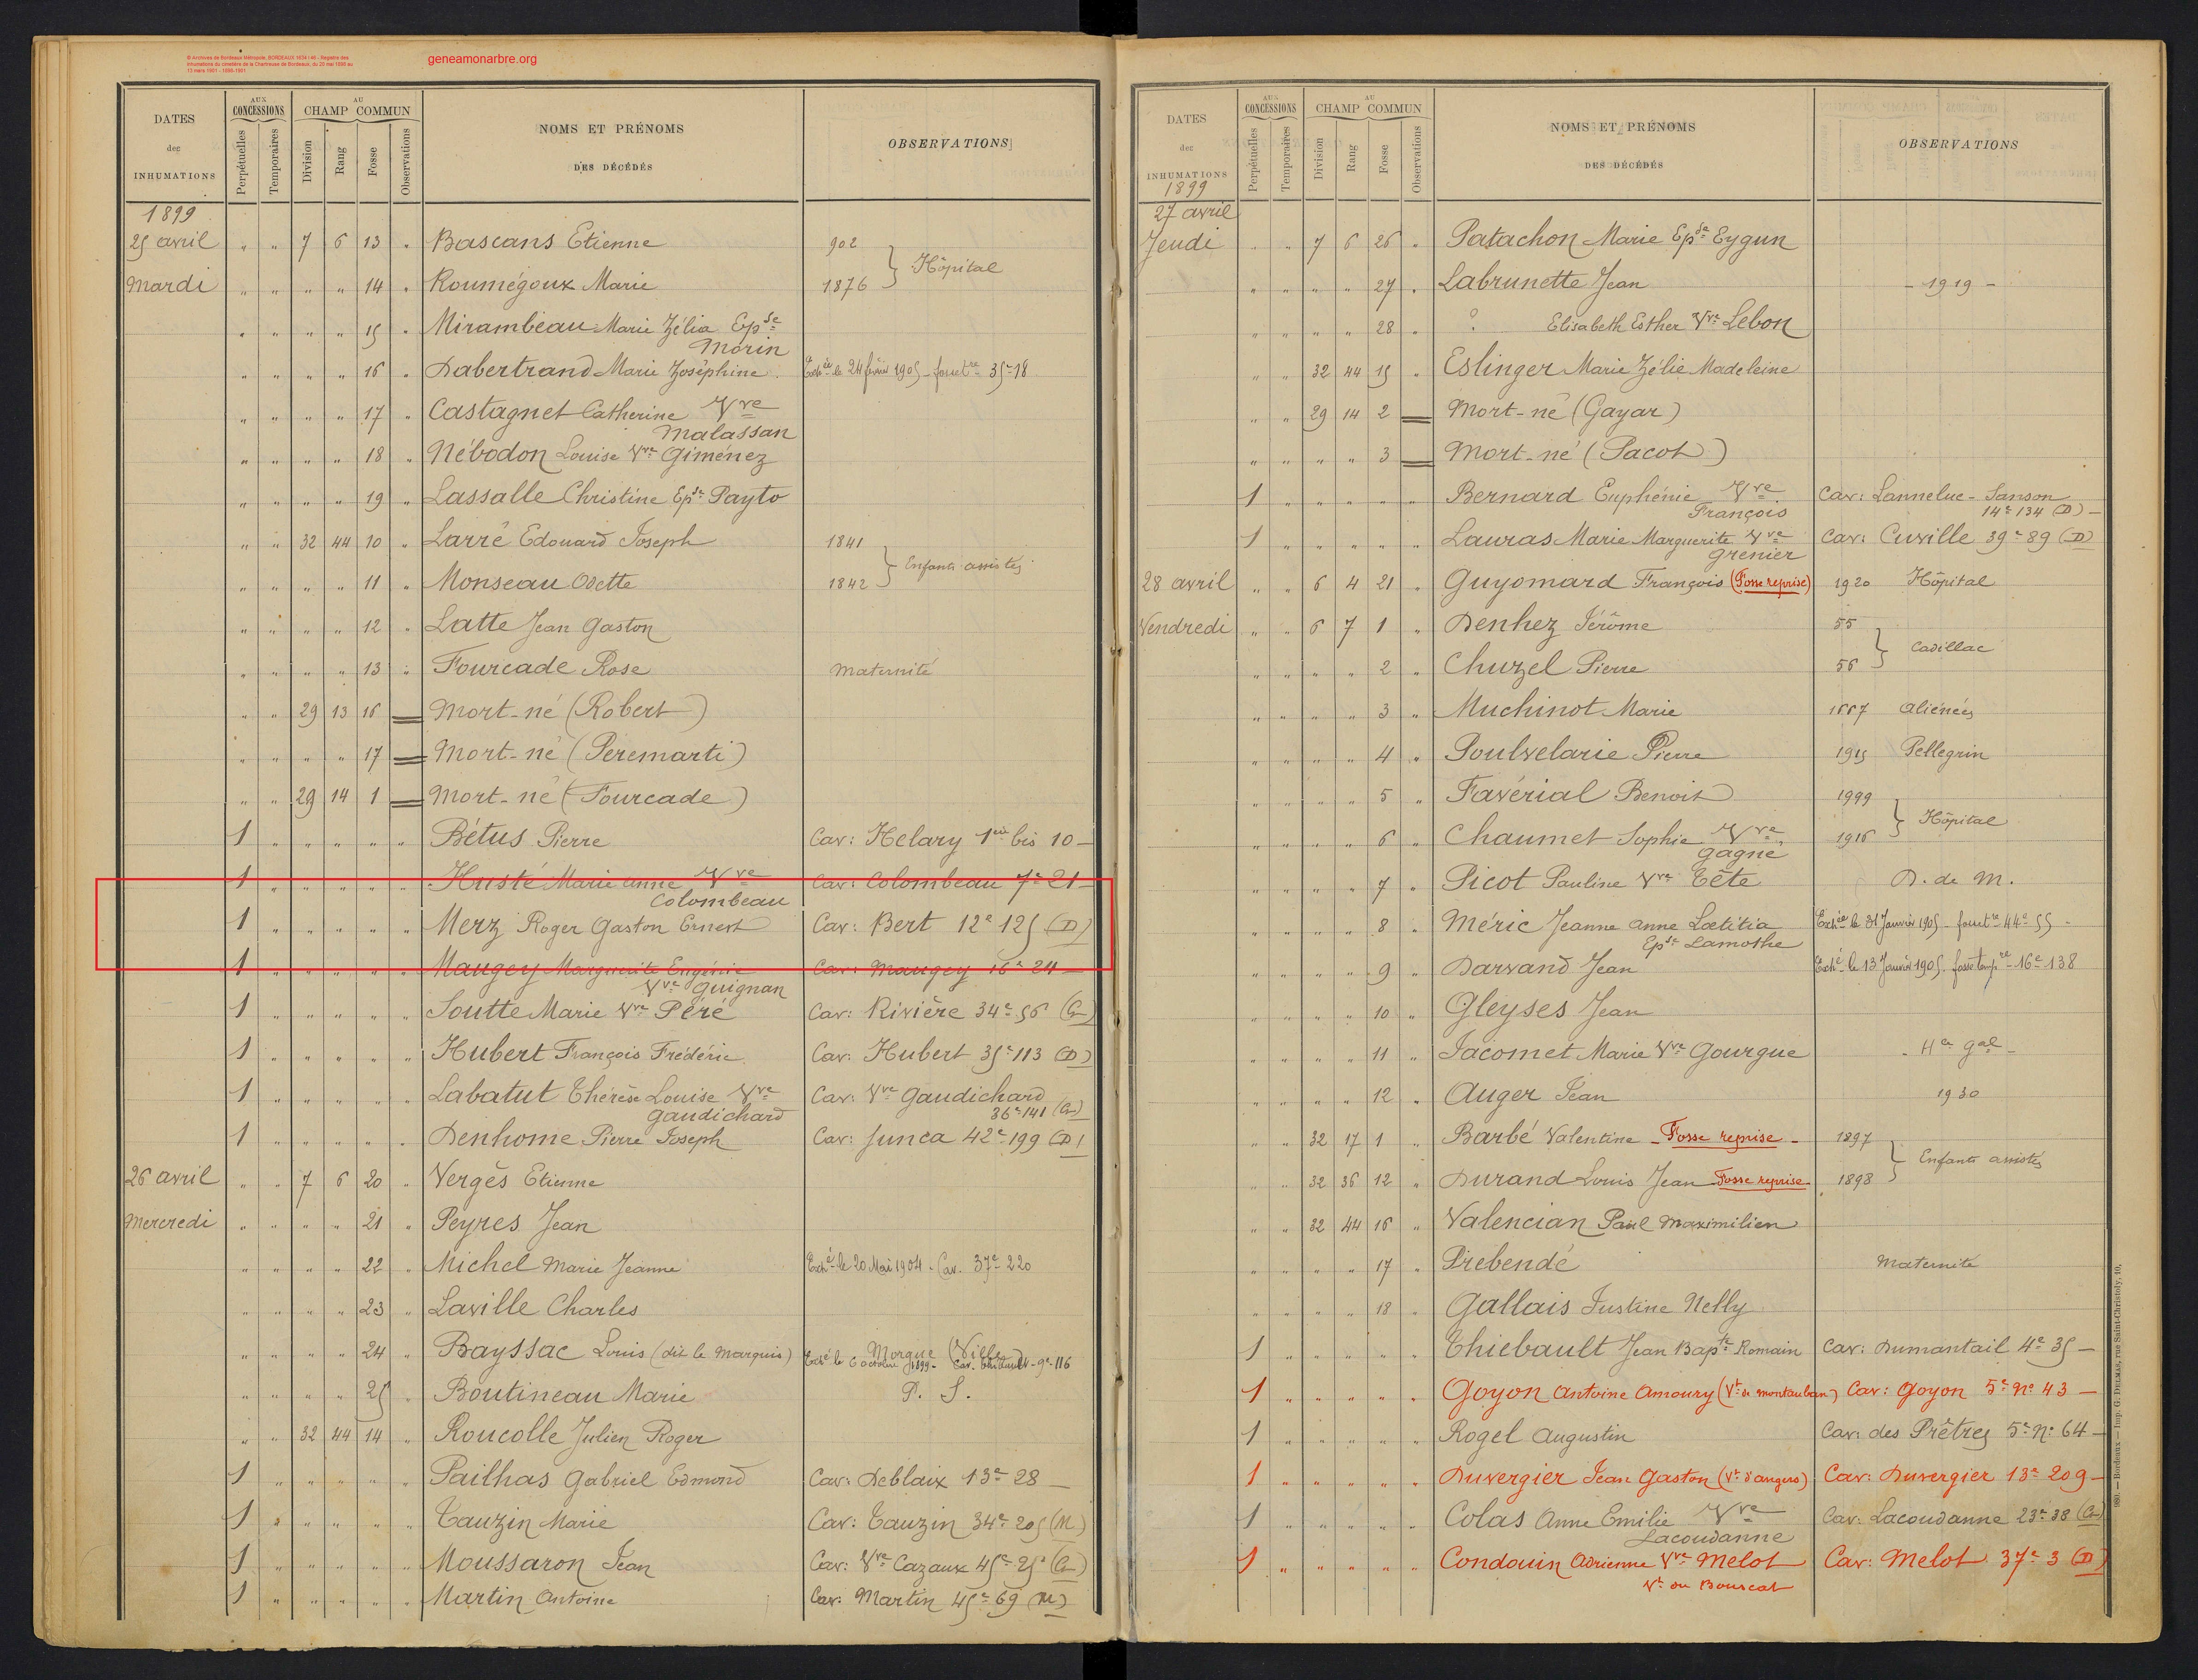 © Archives de Bordeaux Métropole, BORDEAUX 1634 I 46 - Registre des
inhumations du cimetière de la Chartreuse de Bordeaux, du 25 mai 1898 au
geneamonarbre.org
DATES des INHUMATIONS
AUX CONCESSIONS Perpétuelles Temporaires
AU CHAMP COMMUN Division Rang Fosse Observations
NOMS ET PRÉNOMS DES DÉCÉDÉS
OBSERVATIONS
1899
25 avril " " 7 6 13 " Bascans Etienne 902
Hôpital
Mardi " " " " 14 " Roumégoux Marie 1876
" " " " 15 " Mirambeau Marie Zélia Epse
Morin
" " " " 16 " Dabertrand Marie Joséphine Exhée le 24 février 1905 - 35e 18
" " " " 17 " Castagnet Catherine Vve
Malassan
" " " " 18 " Nébodon Louise Vve Giménez
" " " " 19 " Lassalle Christine Epse Payto
" " 32 44 10 " Larré Edouard Joseph 1841
Enfants assistés
" " " " 11 " Monseau Odette 1842
" " " " 12 " Latte Jean Gaston
" " " " 13 " Fourcade Rose Maternité
" " 29 13 16 = Mort-né (Robert)
" " " " 17 = Mort-né (Peremarti)
" " 29 14 1 = Mort-né (Fourcade)
1 " " " " " Bétus Pierre Cav: Helary 1ère bis 10 -
1 " " " " " Husté Marie Anne Vve Cav: Colombeau 7e 21 -
Colombeau
1 " " " " " Merz Roger Gaston Ernest Cav: Bert 12e 125 (D)
1 " " " " " Maugey Marguerite Eugénie Cav: Maugey 16e 24 -
Vve Guignan
1 " " " " " Soutte Marie Vve Péré Cav: Rivière 34e 56
1 " " " " " Hubert François Frédéric Cav: Hubert 35e 113 (D)
1 " " " " " Labatut Thérèse Louise Vve Cav: Vve Gaudichard
Gaudichard 36e 141
1 " " " " " Denhome Pierre Joseph Cav: Junca 42e 199 (D)
26 avril " " 7 6 20 " Vergès Etienne
Mercredi " " " " 21 " Peyres Jean
" " " " 22 " Michel Marie Jeanne Exhé le 20 Mai 1904 - Cav. 37e 220
" " " " 23 " Laville Charles
" " " " 24 " Bayssac Louis (dit le Marquis) Morgue (Ville)
Exhé le 6 octobre 1899 - Cav. 9e-116
" " " " 25 " Boutineau Marie P. S.
" " 32 44 14 " Roucolle Julien Roger
1 " " " " " Pailhas Gabriel Edmond Cav: Deblaix 13e 28 -
1 " " " " " Tauzin Marie Cav: Tauzin 34e 205 (M)
1 " " " " " Moussaron Jean Cav: Vve Cazaux 45e 25
1 " " " " " Martin Antoine Cav: Martin 45e 69 (M)
DATES des INHUMATIONS
AUX CONCESSIONS Perpétuelles Temporaires
AU CHAMP COMMUN Division Rang Fosse Observations
NOMS ET PRÉNOMS DES DÉCÉDÉS
OBSERVATIONS
1899
27 avril
Jeudi " " 7 6 26 " Patachon Marie Epse Eygun
" " " " 27 " Labrunette Jean - 1919 -
" " " " 28 " ? Elisabeth Esther Vve Lebon
" " 32 44 15 " Eslinger Marie Zélie Madeleine
" " 29 14 2 = Mort-né (Gayar)
" " " " 3 = Mort-né (Pacot)
1 " " " " " Bernard Euphénie Vve Cav: Lanneluc-Sanson
François 14e 134 (D) -
1 " " " " " Lauras Marie Marguerite Vve Cav: Cuville 39e 89 (D)
Grenier
28 avril " " 6 4 21 " Guyomard François (Fosse reprise) 1920 Hôpital
Vendredi " " 6 7 1 " Denhez Jérôme 55
Cadillac
" " " " 2 " Chuzel Pierre 56
" " " " 3 " Muchinot Marie Aliénées
" " " " 4 " Poulvelarie Pierre 1915 Pellegrin
" " " " 5 " Favérial Benoit 1999
Hôpital
" " " " 6 " Chaumet Sophie Vve 1916
Gagné
" " " " 7 " Picot Pauline Vve Tête D. de M.
" " " " 8 " Méric Jeanne Anne Lœtitia Exhée le 31 Janvier 1905 - 44e 55 -
Epse Lamothe
" " " " 9 " Darvand Jean Exhé le 13 Janvier 1905. fosse tempre 16e 138
" " " " 10 " Gleyses Jean
" " " " 11 " Jacomet Marie Vve Gourgue - Hce Gal -
" " " " 12 " Auger Jean 1930
" " 32 17 1 " Barbé Valentine - Fosse reprise - 1897
Enfants assistés
" " 32 36 12 " Durand Louis Jean Fosse reprise 1898
" " 32 44 16 " Valencian Paul Maximilien
" " " " 17 " Prebendé Maternité
" " " " 18 " Gallais Justine Nelly
1 " " " " " Thiebault Jean Bapte Romain Cav: Dumantail 4e 35 -
1 " " " " " Goyon Antoine Amoury (Vt de Montauban) Cav: Goyon 5e No 43 -
1 " " " " " Rogel Augustin Cav: des Prêtres 5e No 64 -
1 " " " " " Duvergier Jean Gaston (Vt d'Angers) Cav: Duvergier 13e 209 -
1 " " " " " Colas Anne Emilie Vve Cav: Lacoudanne 23e 38
Lacoudanne
1 " " " " " Condouin Adrienne Vve Melot Cav: Melot 37e 3 (D)
Vt du Bouscat
980. — Bordeaux — Imp. G. DELMAS, rue Saint-Christoly, 10.